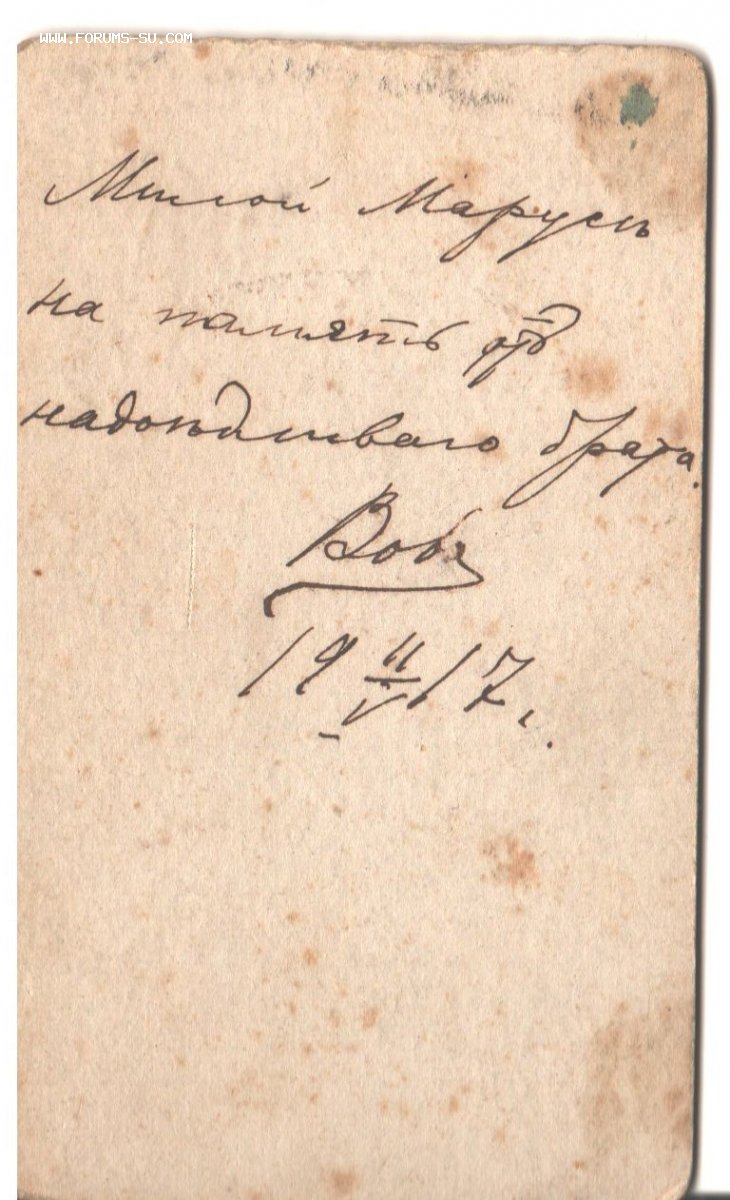 WWW.FORUMS-SU.COM
Милой Марусѣ
на память отъ
надоѣдливаго брата.
Вовы
19 11/V 17 г.